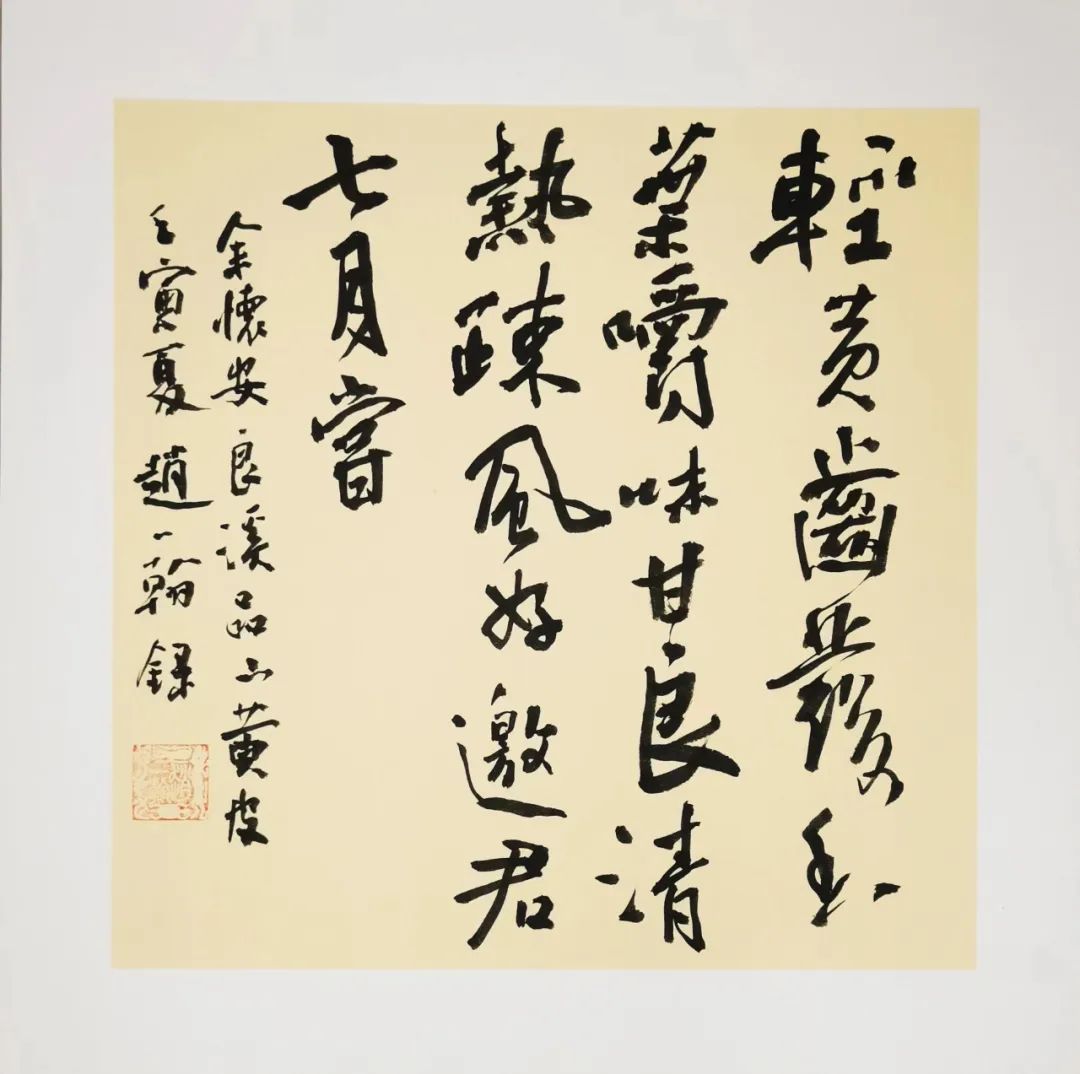 輕黄齒發
葉嚼味甘良清
熱疎風好邀君
七月嘗
余懷安良溪品山黄皮
壬寅夏趙一翰録